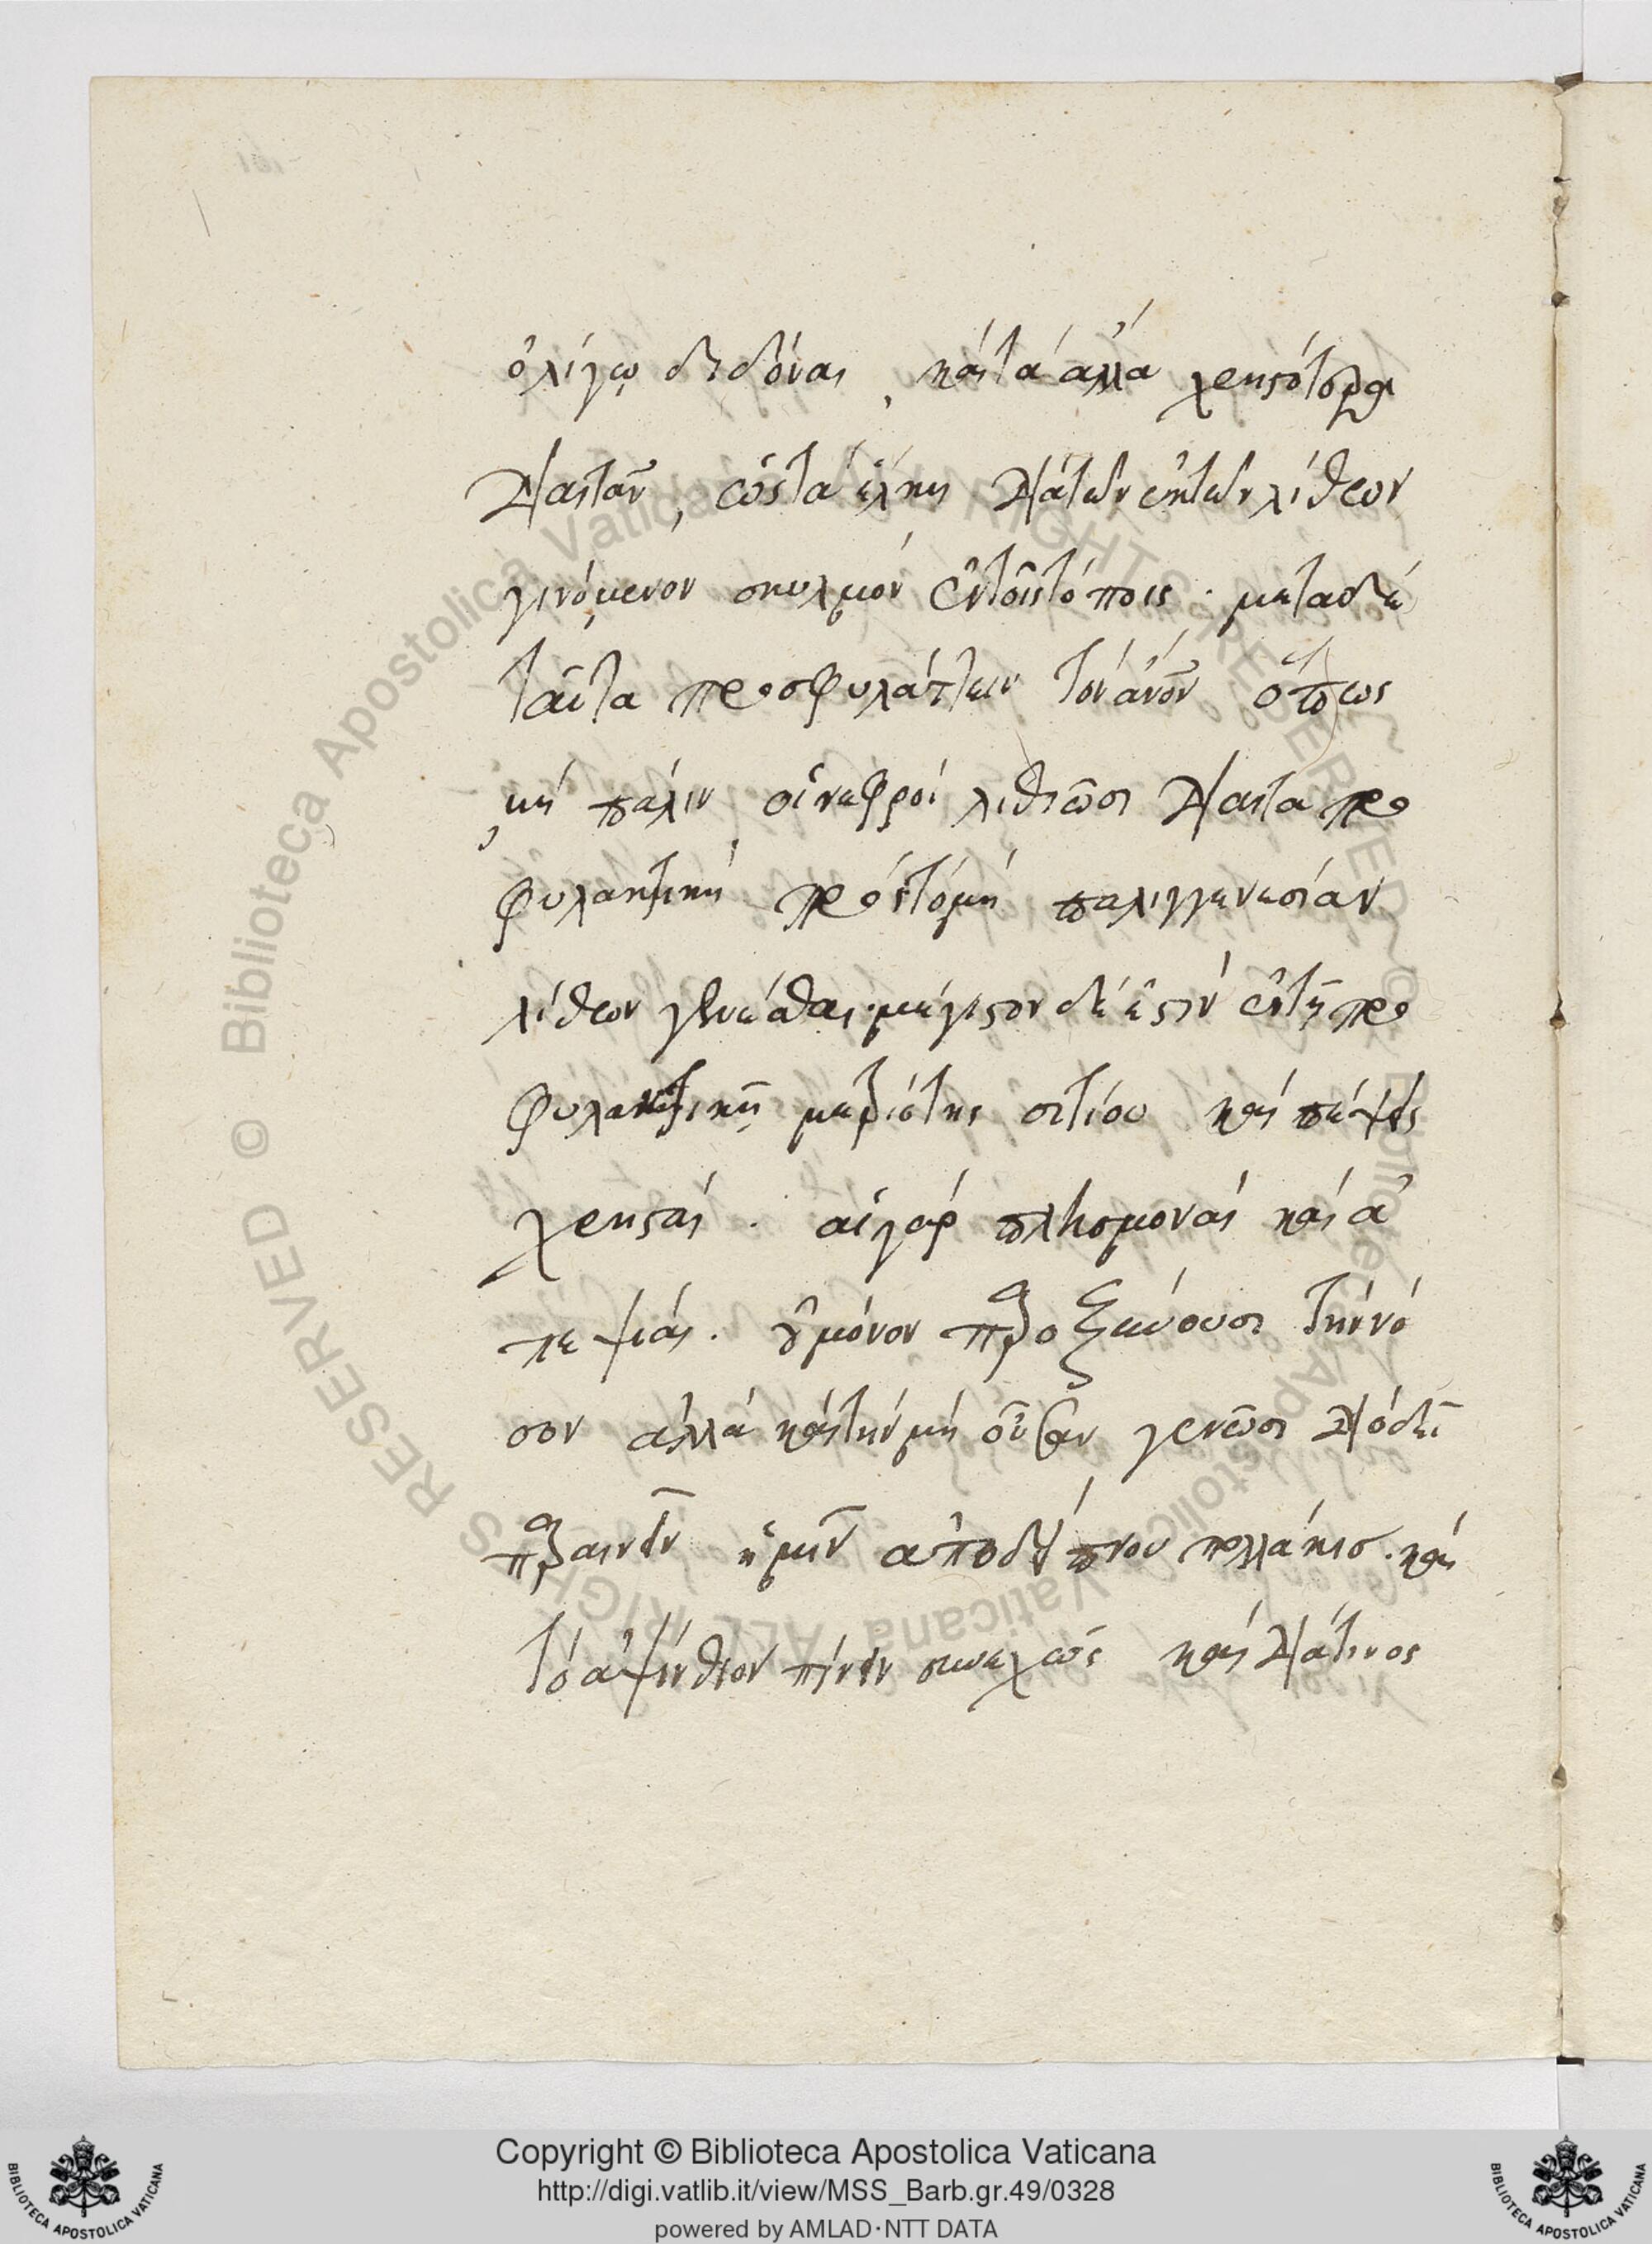 ὀλίγῳ διδόναι, καὶ τὰ ἄλλα χρηστότερα
δίαιταν, ὡς τὰ ἕλκη διὰ τῶν ἐκ τῶν λίθων
γινόμενον σκυλμὸν ἐν τοῖς τόποις · μετὰ δὲ
ταῦτα προσφυλάττειν τὸν ἄνον ὅπως
μὴ πάλιν οἱ νεφροὶ λιθιῶσι δίαιτα προ
φυλακτικὴ πρὸς τὸ μὴ παλιγγενεσίαν
λίθων γενέσθαι· μέγιστον δὲ ἐστὶν ἐν τῇ προ
φυλακτικῇ μετριότης σιτίου καὶ πέψεις
χρησταί · αἱ γὰρ πλησμοναὶ καὶ ἀ
πεψίαι · οὐ μόνον παροξύνουσι τὴν νό
σον ἀλλὰ καὶ τὴν μὴ οὖσαν γεννῶσι διὸ δεῖ
παραινεῖν ἐμεῖν ἀπὸ δείπνου πολλάκισ · καὶ
τὸ ἀψίνθιον πίνειν συνεχῶς καὶ διά τινος
Copyright © Biblioteca Apostolica Vaticana
http://digi.vatlib.it/view/MSS_Barb.gr.49/0328
powered by AMLAD·NTT DATA
BIBLIOTECA APOSTOLICA VATICANA
BIBLIOTECA APOSTOLICA VATICANA